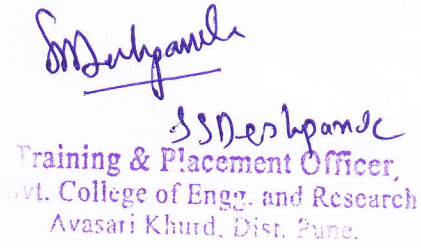 SSDeshpande
Training & Placement Officer,
Gvt. College of Engg. and Research
Avasari Khurd, Dist. Pune.